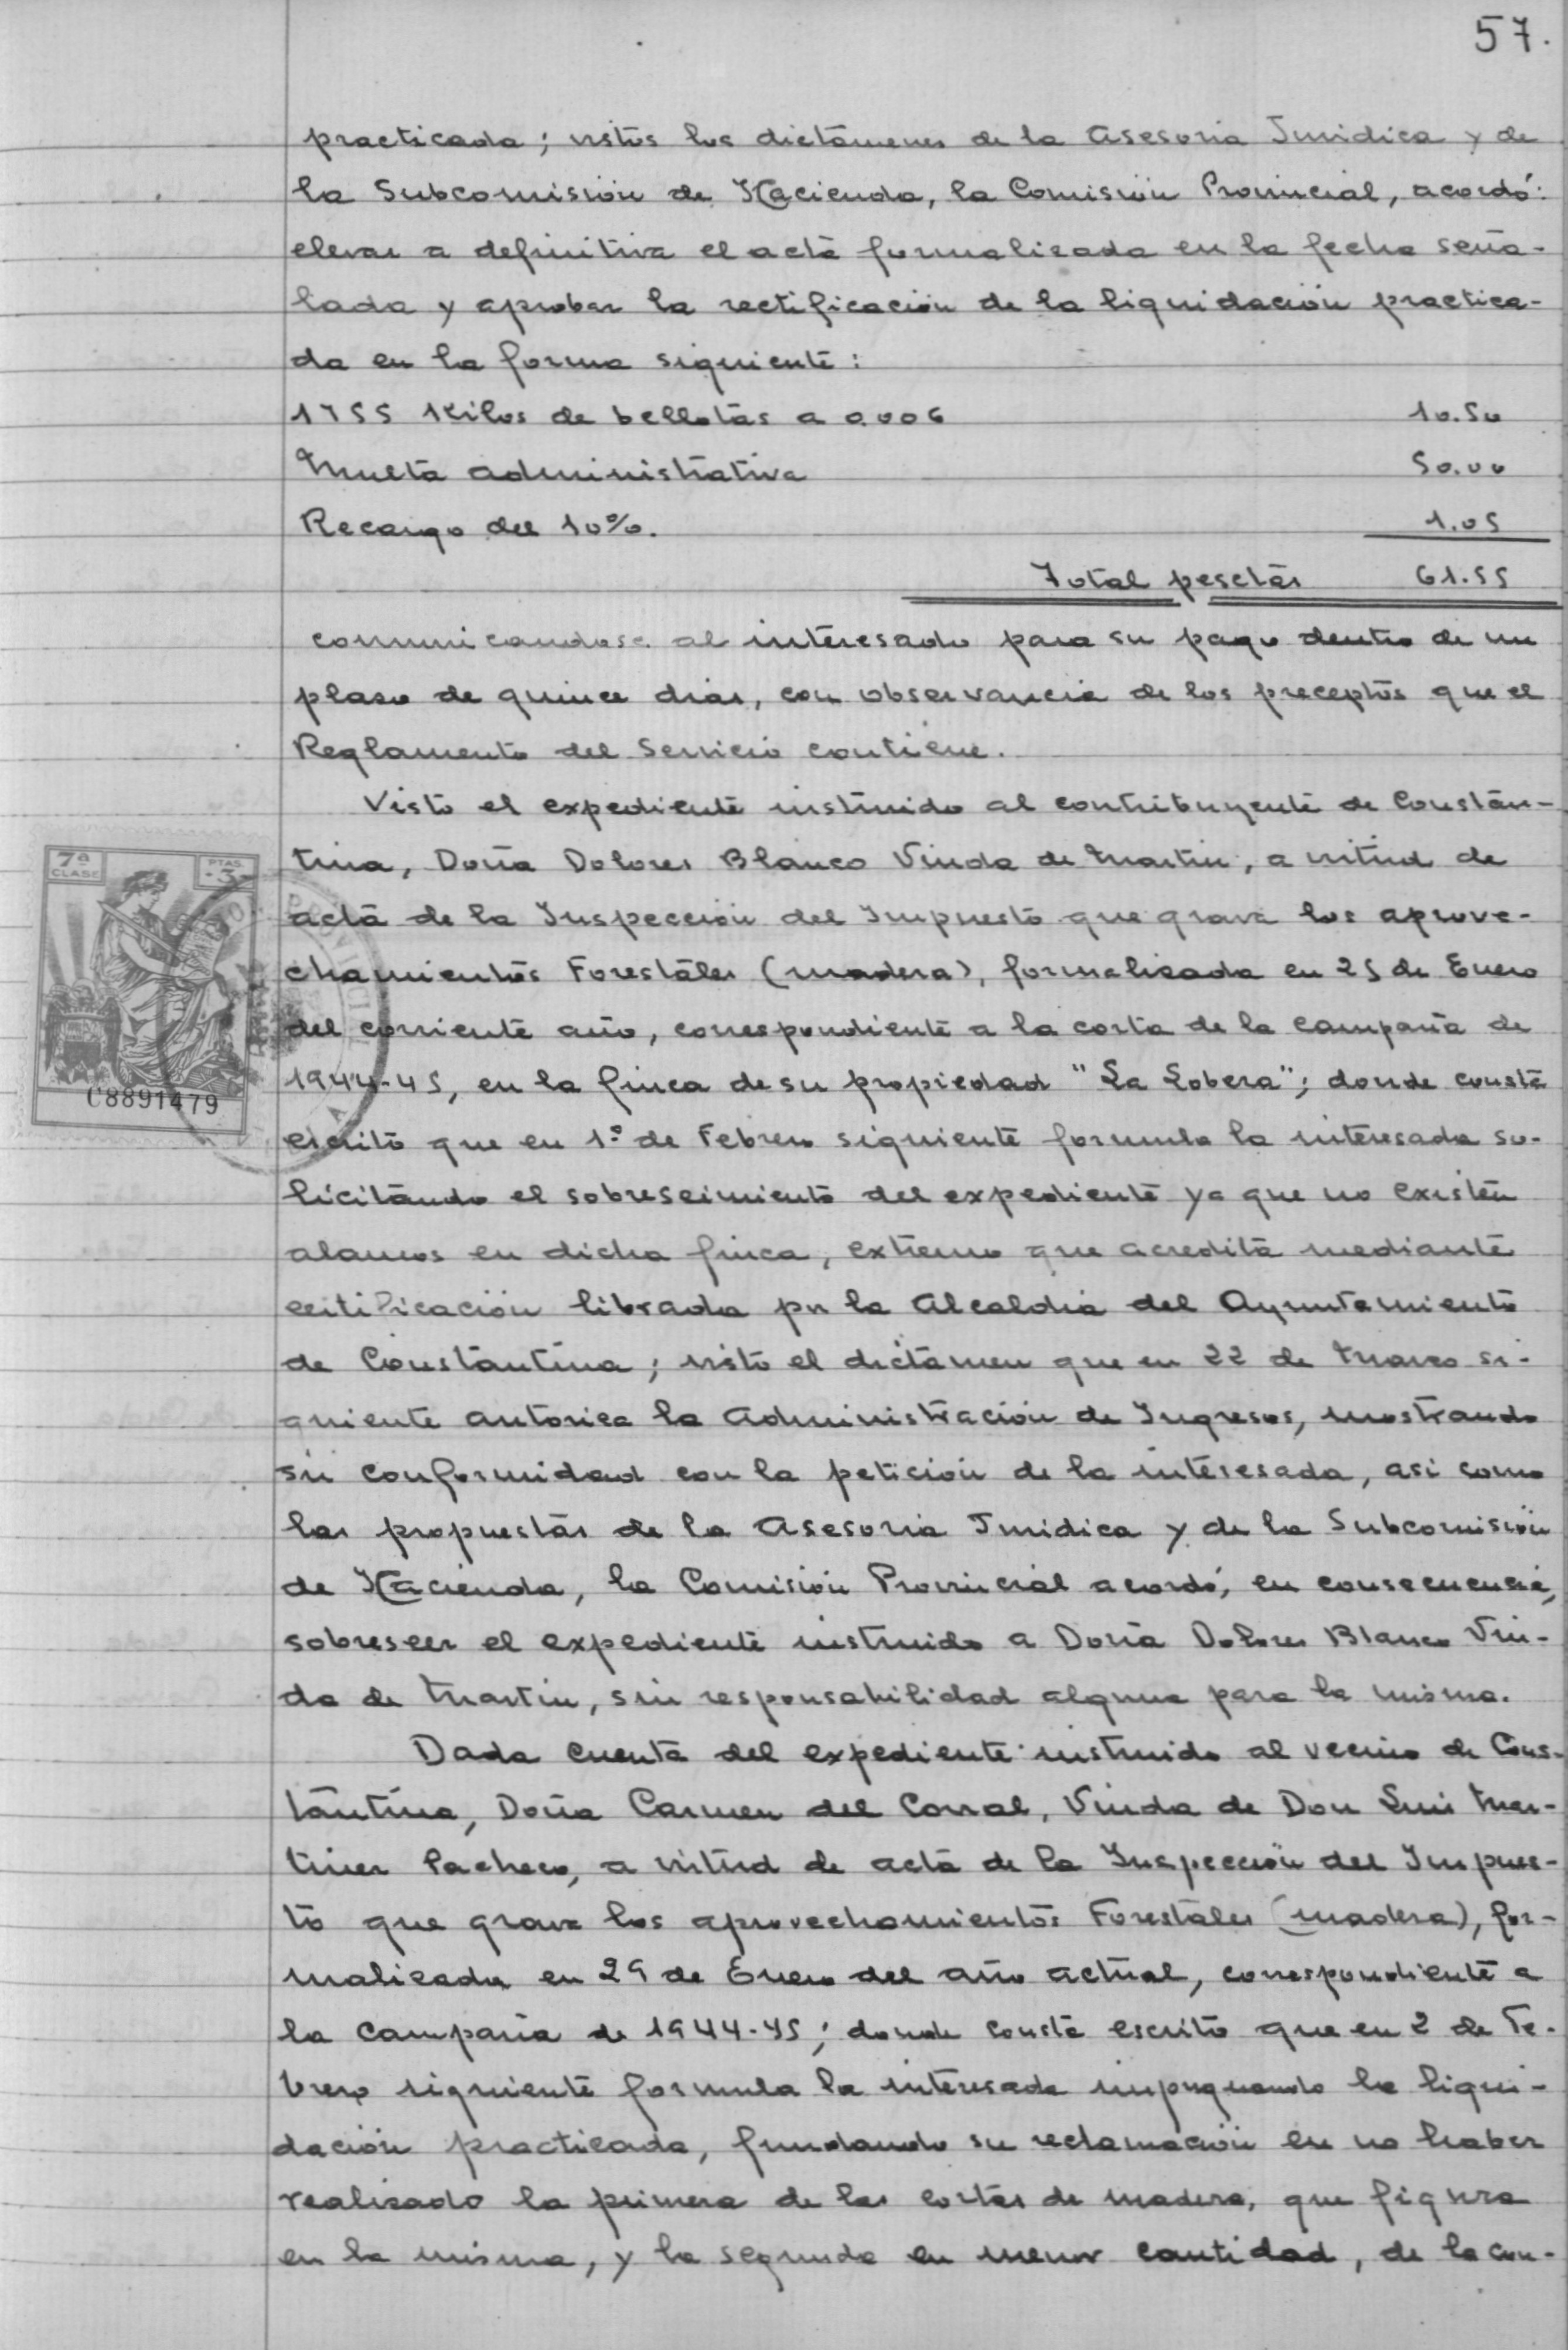 57.
practicada; vistos los dictámenes de la Asesoria Juridica y de
la Subcomisión de Hacienda, la Comisión Provincial, acordó:
elevar a definitiva el acta formalizada en la fecha seña-
lada y aprobar la rectificación de la liquidación practica-
da en la forma siguiente:
1755 Kilos de bellotas a 0.006 10.50
Multa administrativa 50.00
Recargo del 10%. 1.05
Total pesetas 61.55
comunicandose al interesado para su pago dentro de un
plazo de quince dias, con observancia de los preceptos que el
Reglamento del Servicio contiene.
Visto el expediente instruido al contribuyente de Constan-
tina, Doña Dolores Blanco Viuda de Martin, a virtud de
acta de la Inspección del Impuesto que grava los aprove-
chamientos Forestales (madera), formalizada en 25 de Enero
del corriente año, correspondiente a la corta de la campaña de
1944-45, en la finca de su propiedad "La Lobera"; donde consta
escrito que en 1º de Febrero siguiente formula la interesada so-
licitando el sobreseimiento del expediente ya que no existen
alamos en dicha finca, extremo que acredita mediante
certificación librada por la Alcaldia del Ayuntamiento
de Constantina; visto el dictamen que en 22 de Marzo si-
guiente autoriza la Administración de Ingresos, mostrando
su conformidad con la petición de la interesada, asi como
las propuestas de la Asesoria Juridica y de la Subcomisión
de Hacienda, la Comisión Provincial acordó, en consecuencia,
sobreseer el expediente instruido a Doña Dolores Blanco Viu-
da de Martin, sin responsabilidad alguna para la misma.
Dada cuenta del expediente instruido al vecino de Cons-
tantina, Doña Carmen del Corral, Viuda de Don Luis Mar-
tinez Pacheco, a virtud de acta de la Inspección del Impues-
to que grava los aprovechamientos Forestales (madera), for-
malizada en 29 de Enero del año actual, correspondiente a
la campaña de 1944-45; donde consta escrito que en 2 de Fe-
brero siguiente formula la interesada impugnando la liqui-
dación practicada, fundando su reclamación en no haber
realizado la primera de las cortas de madera, que figura
en la misma, y la segunda en menor cantidad, de la con-
7ª CLASE
PTAS. -3-
C8891479